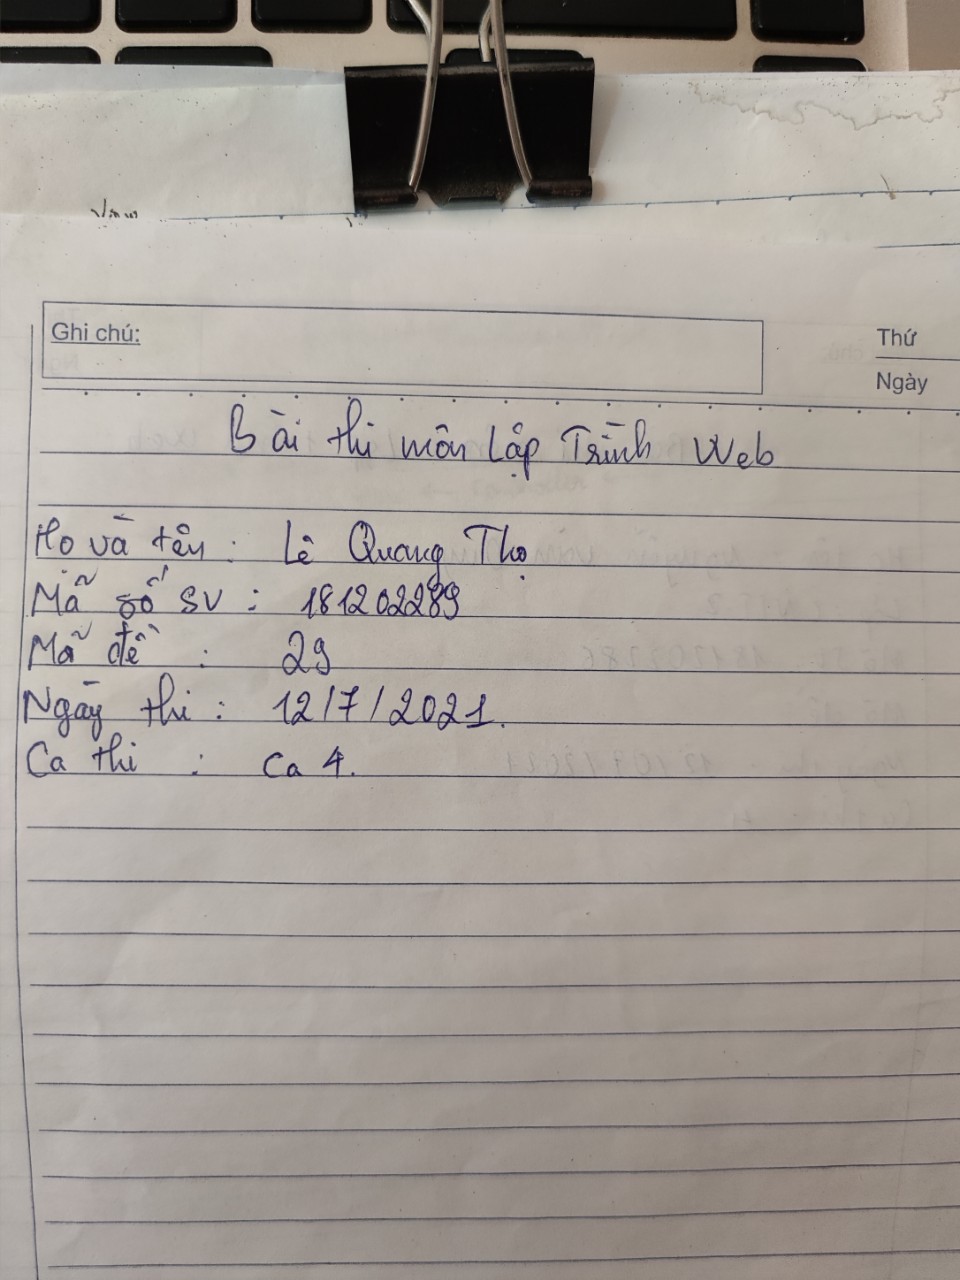 Ghi chú:
Thứ
Ngày
Bài thi môn Lập Trình Web
Họ và tên : Lê Quang Thọ
Mã số SV : 181202289
Mã đề : 29
Ngày thi : 12/7/2021.
Ca thi : Ca 4.